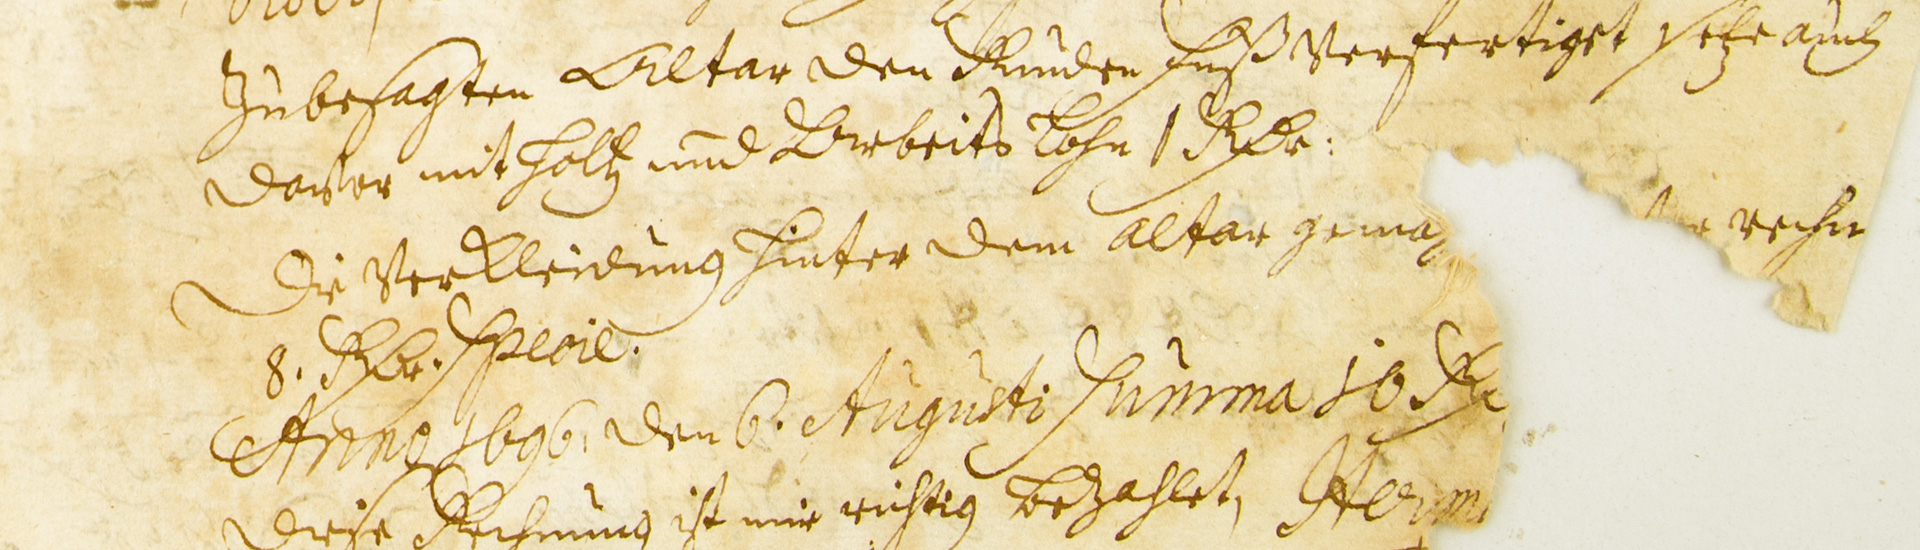 Zubesagten Altar den Runden Fuß Verfertiget setze auch
davor mit Holtz und Arbeits Lohn 1 Rthlr:
Die Verkleidung hinter dem altar gemach rechn
8. Rthlr. Specie.
Anno 1696. den 6. Augusti Summa 16 R
diese Rechnung ist mir richtig bezahlet,